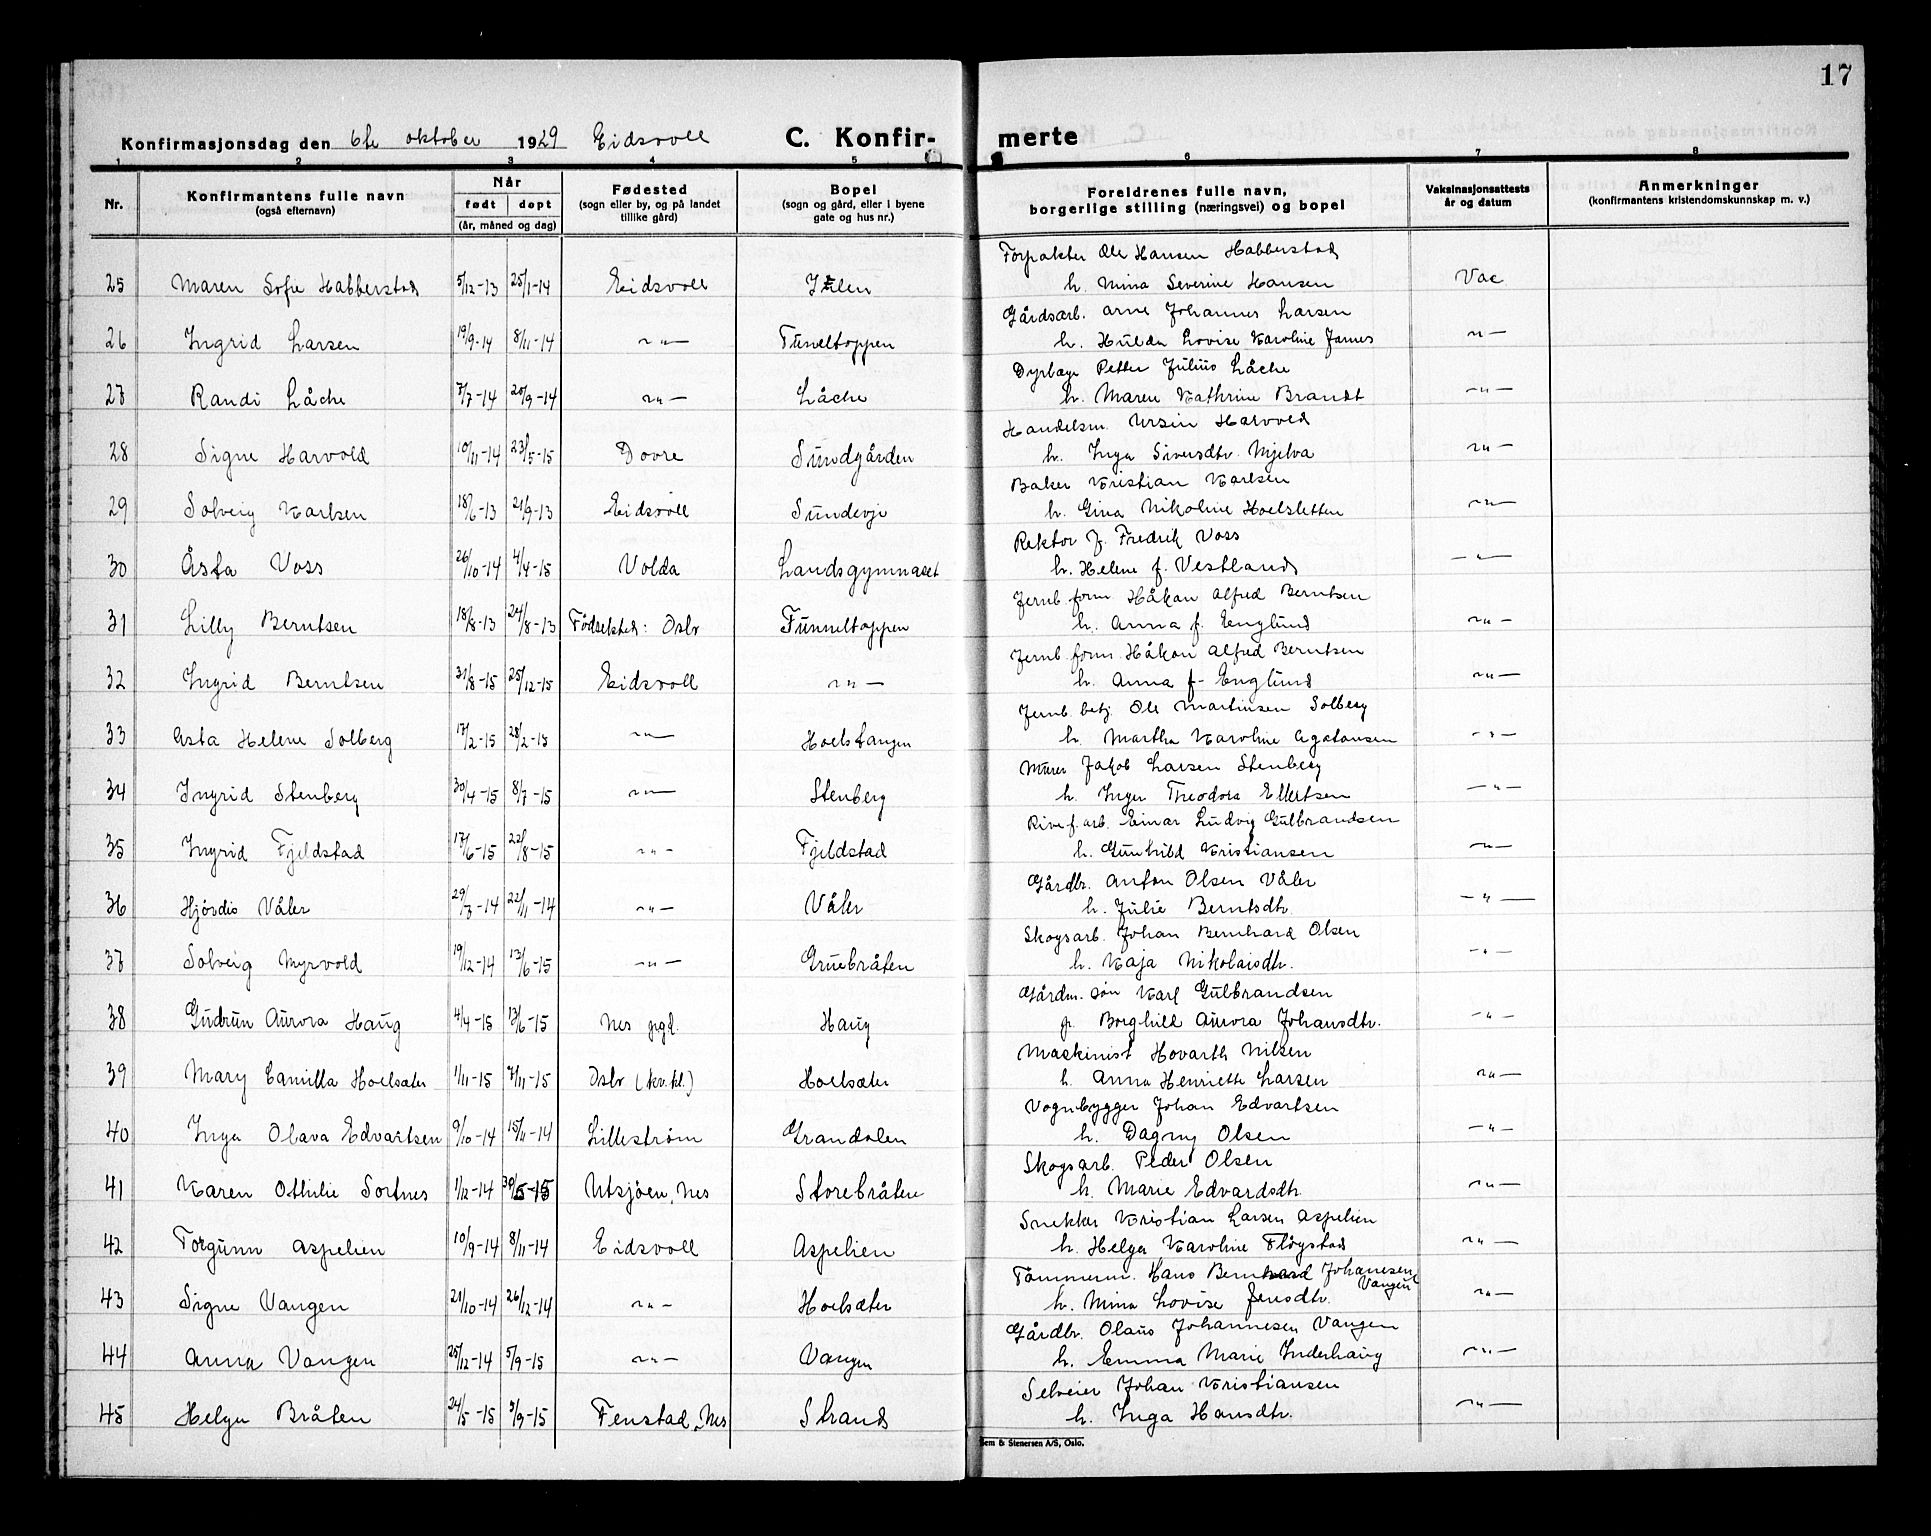 17
Konfirmasjonsdag den 6te oktober 1929 Eidsvoll C. Konfir- merte
1 2 3 4 5 6 7 8
Nr. Konfirmantens fulle navn (også efternavn) Når født døpt (år, måned og dag) Fødested (sogn eller by, og på landet tillike gård) Bopel (sogn og gård, eller i byene gate og hus nr.) Foreldrenes fulle navn, borgerlige stilling (næringsvei) og bopel Vaksinasjonsattests år og datum Anmerkninger (konfirmantens kristendomskunnskap m. v.)
Forpakter Ole Hansen Habberstad
25 Maren Sofie Habberstad 5/12-13 25/1-14 Eidsvoll h. Mina Severine Hansen Vac
Gårdsarb. Arne Johannes Larsen
26 Ingrid Larsen 19/9-14 8/11-14 -"- Tunneltoppen h. Hulda Lovise Karoline James -"-
Dyrlæge Petter Julius Låche
27 Randi Låche 7/7-14 20/9-14 -"- Låche h. Maren Kathrine Brandt -"-
Handelsm. Ursin Harvold
28 Signe Harvold 10/11-14 23/5-15 Dovre Sundgården h. Inga Siversdtr. Mjelva -"-
Baker Kristian Karlsen
29 Solveig Karlsen 18/6-13 21/9-13 Eidsvoll Sundevje h. Gina Nikoline Hoelsletten -"-
Rektor J. Fredrik Voss
30 Åsta Voss 26/10-14 4/4-15 Volda Landsgymnaset h. Helene f. Vestland -"-
Jernb.form Håkon Alfred Berntsen
31 Lilly Berntsen 18/8-13 24/8-13 Fødselsted: Oslo Tunneltoppen h. Anna f. Englund -"-
Jernb.form. Håkon Alfred Berntsen
32 Ingrid Berntsen 31/8-15 25/12-15 Eidsvoll -"- h. Anna f. Englund -"-
Jernb.betj. Ole Martinsen Solberg
33 Asta Helene Solberg 17/2-15 28/2-15 -"- Hoelstangen h. Martha Karoline Agatonsen -"-
Murer Jakob Larsen Stenberg
34 Ingrid Stenberg 30/4-15 8/7-15 -"- Stenberg h. Inger Theodora Ellertsen -"-
Einar Ludvig Gulbrandsen
35 Ingrid Fjeldstad 17/6-15 22/8-15 -"- Fjeldstad h. Gunhild Kristiansen -"-
Gårdbr. Anton Olsen Våler
36 Hjördis Våler 29/7-14 22/11-14 -"- Våler h. Julie Berntsdtr. -"-
Skogsarb. Johan Bernhard Olsen
37 Solveig Myrvold 19/12-14 13/6-15 -"- Gruebråten h. Kaja Nikolaisdtr. -"-
Gårdm. søn Karl Gulbrandsen
38 Gudrun Aurora Haug 4/4-15 13/6-15 Nes prgd. Haug p. Borghild Aurora Johansdtr. -"-
Maskinist Hovarth Nilsen
39 Mary Camilla Hoelsæter 1/11-15 7/11-15 Oslo (kv.kl.) Hoelsæter h. Anna Henriette Larsen -"-
Vognbygger Johan Edvartsen
40 Inga Olava Edvartsen 9/10-14 15/11-14 Lillestrøm Grandalen h. Dagny Olsen -"-
Skogsarb. Peder Olsen
41 Karen Othilie Sortnes 1/12-14 30/5-15 Utsjöen, Nes Storebråten h. Marie Edvardsdtr. -"-
Snekker Kristian Larsen Aspelien
42 Torgunn Aspelien 10/9-14 8/11-14 Eidsvoll Aspelien h. Helga Karoline Flögstad -"-
Tömmerm. Hans Bernhard Johanesen Vangen
43 Signe Vangen 21/10-14 26/12-14 -"- Hoelsæter h. Mina Lovise Jensdtr. -"-
Gårdbr. Olaus Johannesen Vangen
44 Anna Vangen 25/12-14 5/9-15 -"- Vangen h. Emma Marie Inderhaug -"-
Selveier Johan Kristiansen
45 Helga Bråten 24/5-15 5/9-15 Fenstad, Nes Strand h. Inga Hansdtr. -"-
Sem & Stenersen A/S, Oslo.